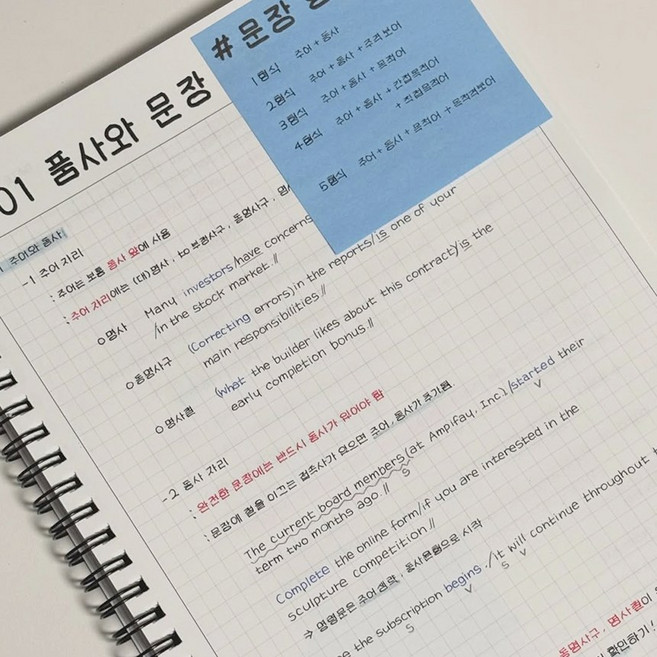 # 문장
1형식 주어 + 동사
2형식 주어 + 동사 + 주격보어
3형식 주어 + 동사 + 목적어
4형식 주어 + 동사 + 간접목적어
+ 직접목적어
5형식 주어 + 동사 + 목적어 + 목적격보어
01 품사와 문장
1 주어와 동사
-1 주어 자리
: 주어는 보통 동사 앞에 사용
: 주어 자리에는 (대)명사, to 부정사구, 동명사구,
o 명사 Many investors/have concerns
/in the stock market.//
o 동명사구 (Correcting errors)in the reports/is one of your
main responsibilities//
o 명사절 (What the builder likes about this contract)/is the
early completion bonus.//
-2 동사 자리
: 완전한 문장에는 반드시 동사가 있어야 함
: 문장에 절을 이끄는 접속사가 있으면 주어, 동사가 추가됨
The current board members(at Ampifay, Inc.)/started their
S V
term two months ago.//
Complete the online form/if you are interested in the
sculpture competition//
⇒ 명령문은 주어 생략, 동사원형으로 시작
the subscription begins./it will continue throughout
S V S V
동명사구, 명사절이
확인하기!